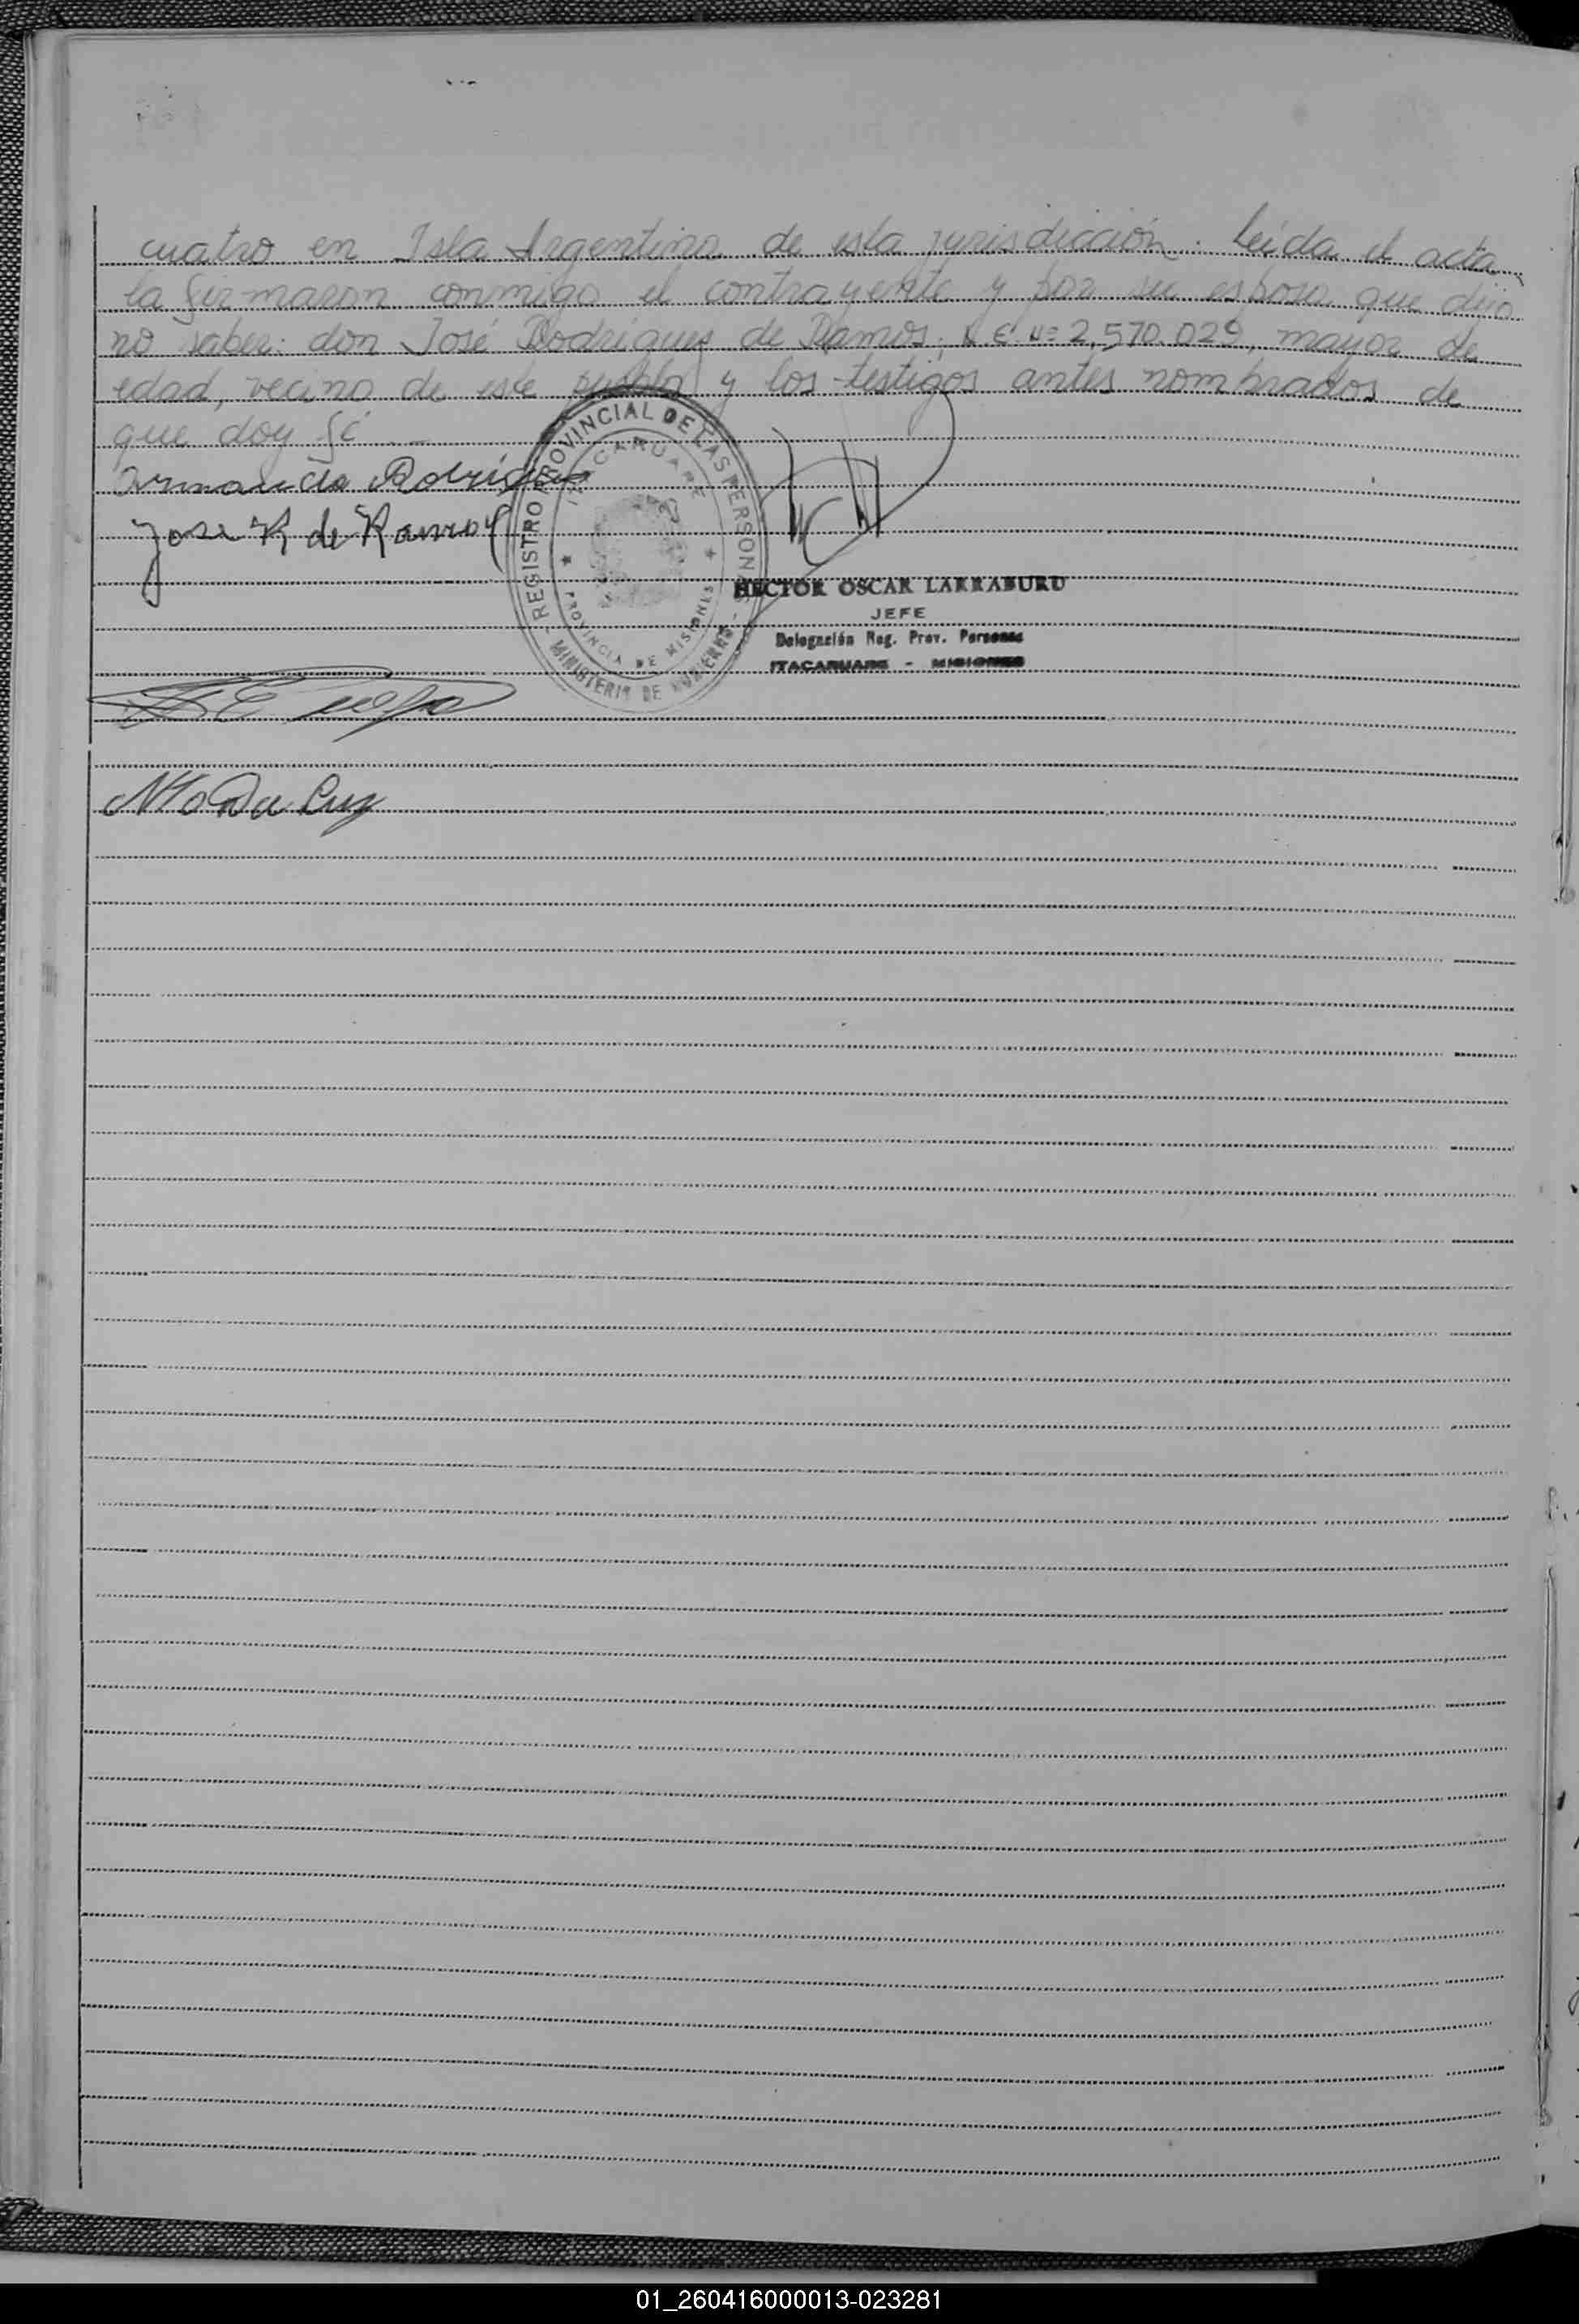 cuatro en Isla Argentina de esta jurisdicción. Leída el acta
la firmaron conmigo el contrayente y por su esposa que dijo
no saber: don José Rodrigues de Ramos, L.E. Nº 2.570.029, mayor de
edad, vecino de este pueblo y los testigos antes nombrados de
que doy fé.-
Rodrigues
Jose R de Ramos
REGISTRO PROVINCIAL DE LAS PERSONAS
ITACARUARE
PROVINCIA DE MISIONES
MINISTERIO DE GOBIERNO
HECTOR OSCAR LARRABURU
JEFE
Delegación Reg. Prov. Personas
ITACARUARE - MISIONES
Da Luz
01_260416000013-023281